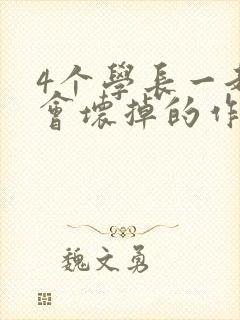 4个學長一
會壞掉的作
魏文勇